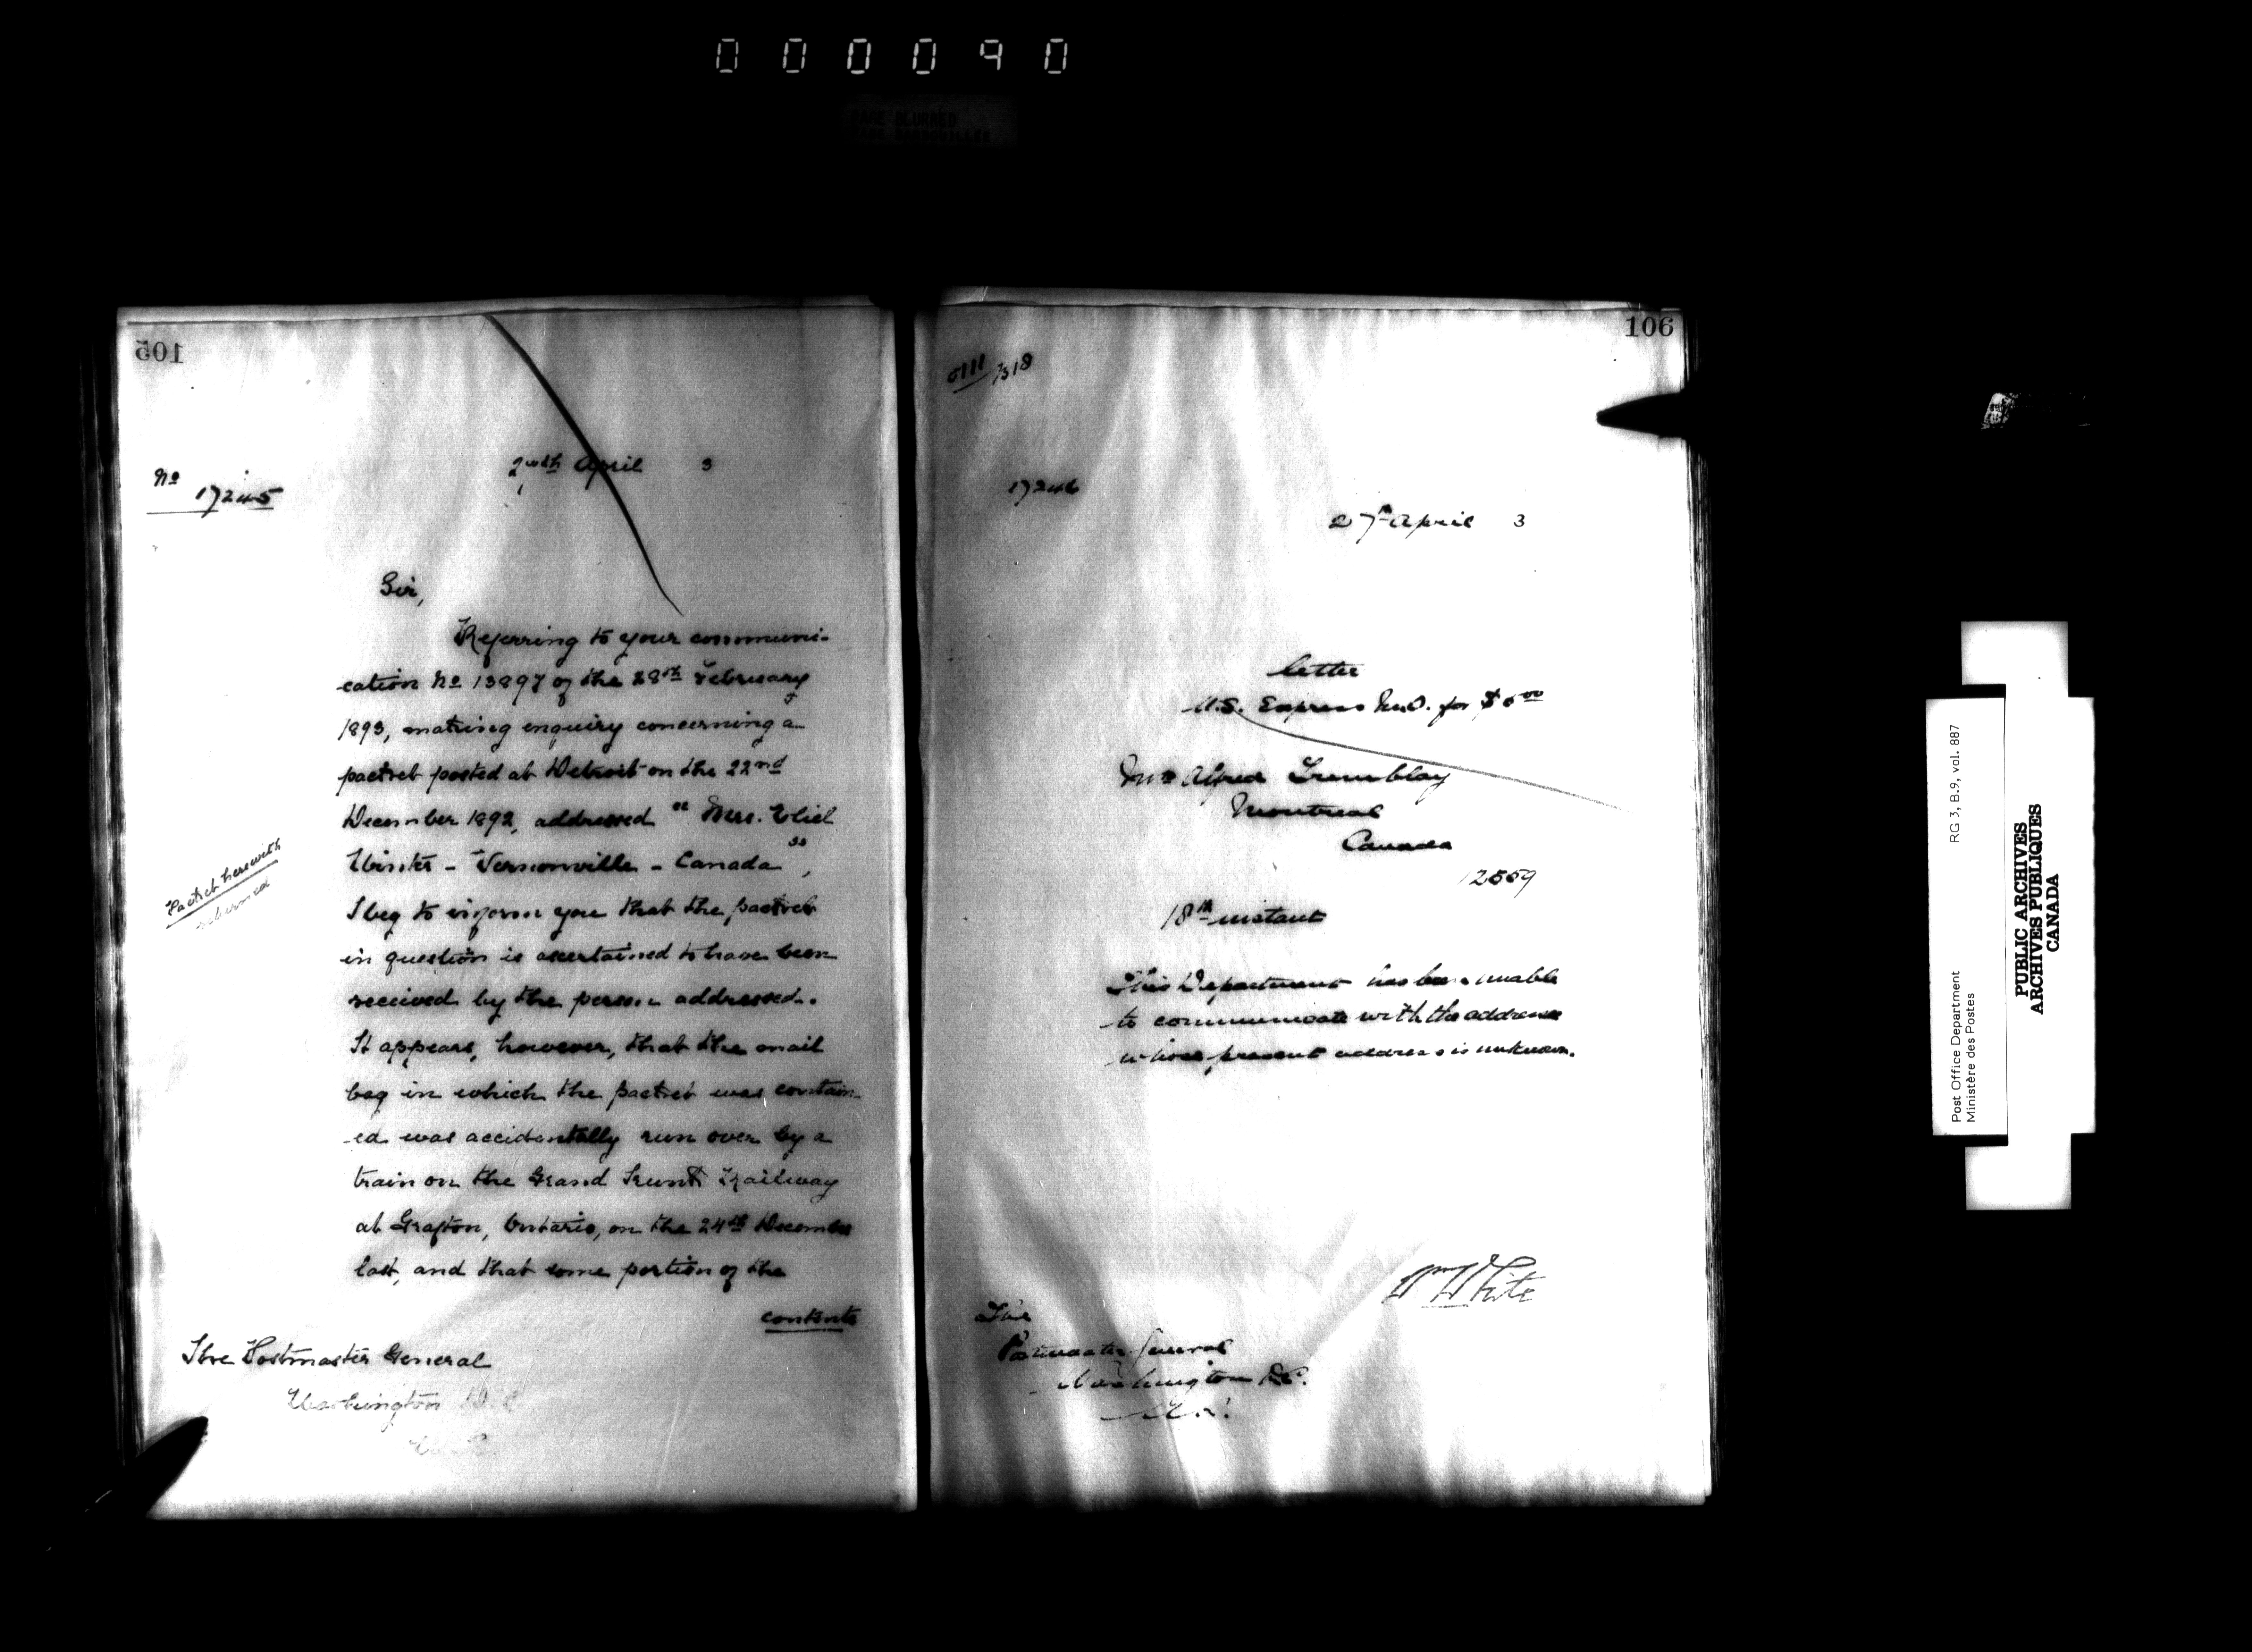 000090
105
No
17245
27th April 3
Sir,
Referring to your communi-
cation No 13897 of the 28th February
1893, making enquiry concerning a
packet posted at Detroit on the 22nd
December 1892, addressed "Mrs. Eliel
Winter - Vernonville - Canada",
I beg to inform you that the packet
in question is ascertained to have been
received by the person addressed.
It appears, however, that the mail
bag in which the packet was contain-
ed was accidentally run over by a
train on the Grand Trunk Railway
at Grafton, Ontario, on the 24th December
last, and that some portion of the
contents
Packet herewith
returned
The Postmaster General
Washington D.C.
106
17246
27th April 3
letter
U.S. Express M.O. for $5.00
Mrs Alfred Tremblay
Montreal
Canada
18th instant
This Department has been unable
to communicate with the addressee
whose present address is unknown.
Wm White
The
Postmaster General
Washington D.C.
Post Office Department
Ministère des Postes
RG 3, B.9, vol. 887
PUBLIC ARCHIVES
ARCHIVES PUBLIQUES
CANADA